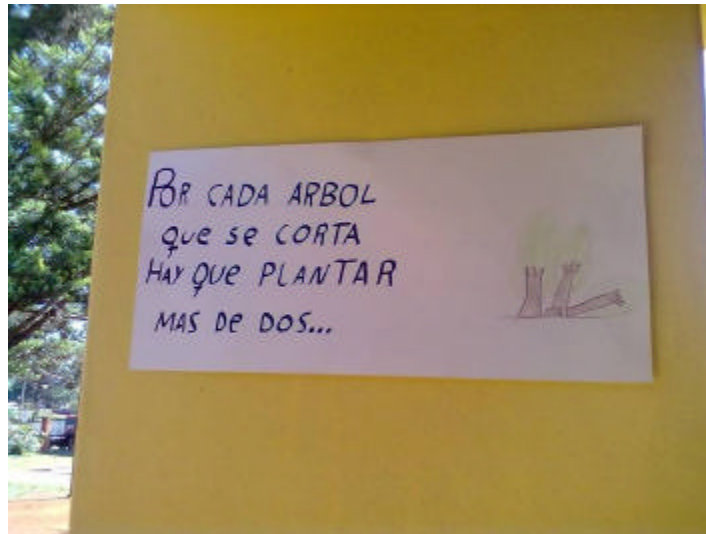 POR CADA ARBOL
que se CORTA
HAY QUE PLANTAR
MAS De DOS...